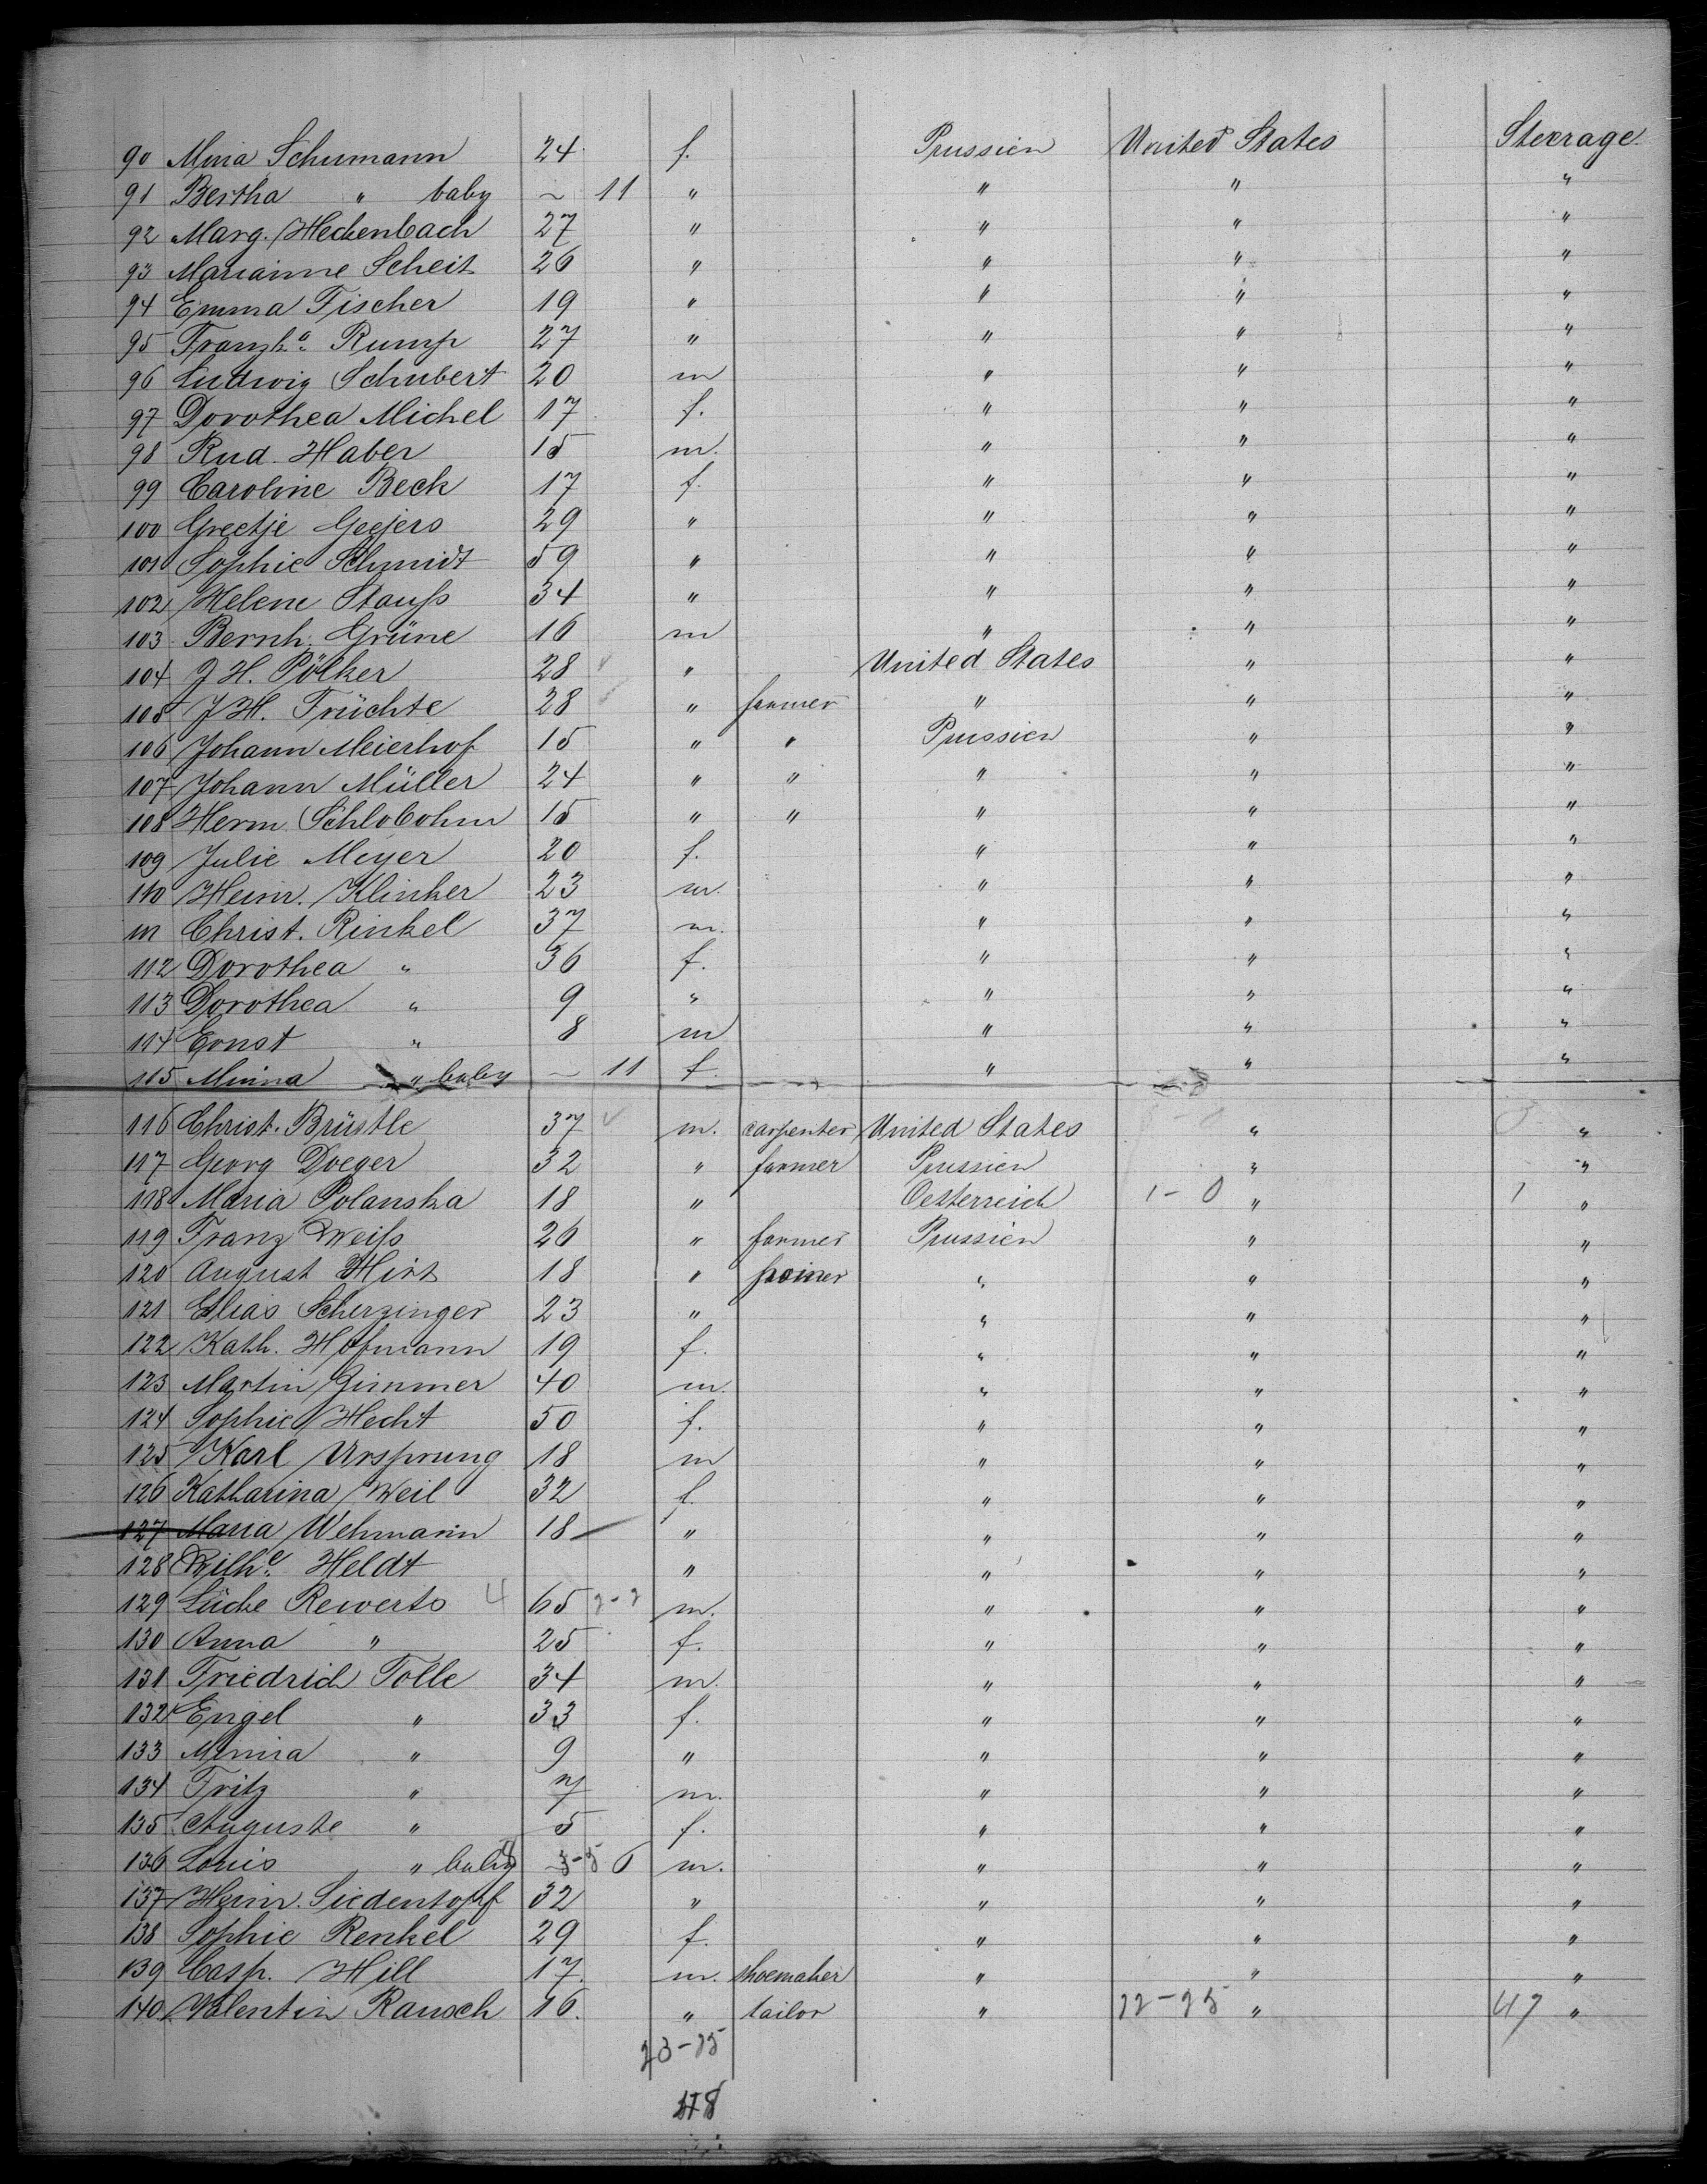 90 Mina Schumann 24 f. Prussien United States Steerage
91 Bertha " baby ~ 11 " " " "
92 Marg. Heckenbach 27 " " " "
93 Marianne Scheit 26 " " " "
94 Emma Fischer 19 " " " "
95 Franzk.a Rump 27 " " " "
96 Ludwig Schubert 20 m " " "
97 Dorothea Michel 17 f. " " "
98 Rud. Haber 15 m. " " "
99 Caroline Beck 17 f. " " "
100 Greetje Geejers 29 " " " "
101 Sophie Schmidt 59 " " " "
102 Helene Stauß 34 " " " "
103 Bernh. Grüne 16 m " " "
104 J H. Pölker 28 " United States " "
105 J H. Früchte 28 " farmer " " "
106 Johann Meierhof 15 " " Prussien " "
107 Johann Müller 24 " " " " "
108 Herm. Schlobohm 15 " " " " "
109 Julie Meyer 20 f. " " "
110 Heinr. Klinker 23 m. " " "
111 Christ. Rinkel 37 m. " " "
112 Dorothea " 36 f. " " "
113 Dorothea " 9 " " " "
114 Ernst " 8 m " " "
115 Minna " baby ~ 11 f. " " "
116 Christ. Brüstle 37 m. carpenter United States " "
117 Georg Doeger 32 " farmer Prussien " "
118 Maria Polanska 18 " Oesterreich 1-0 " 1 "
119 Franz Weiß 26 " farmer Prussien " "
120 August Hirt 18 " " " "
121 Elias Scherzinger 23 " " " "
122 Kath. Hofmann 19 f. " " "
123 Martin Gimmer 40 m. " " "
124 Sophie Hecht 50 f. " " "
125 Karl Ursprung 18 m " " "
126 Katharina Weil 32 f. " " "
127 Maria Wehmann 18 " " " "
128 Wilh.e Heldt " " " "
129 Lücke Rewerts 4 65 2-2 m. " " "
130 Anna " 25 f. " " "
131 Friedrich Tolle 34 m. " " "
132 Engel " 33 f. " " "
133 Minna " 9 " " " "
134 Fritz " 7 m. " " "
135 Auguste " 5 f. " " "
136 Louis " baby 6 m. " " "
137 Heinr. Siedentopf 32 " " " "
138 Sophie Renkel 29 f. " " "
139 Casp. Hill 17. m. shoemaker " " "
140. Valentin Rausch 16. " tailor " 22-25 " 47 "
23-25
48